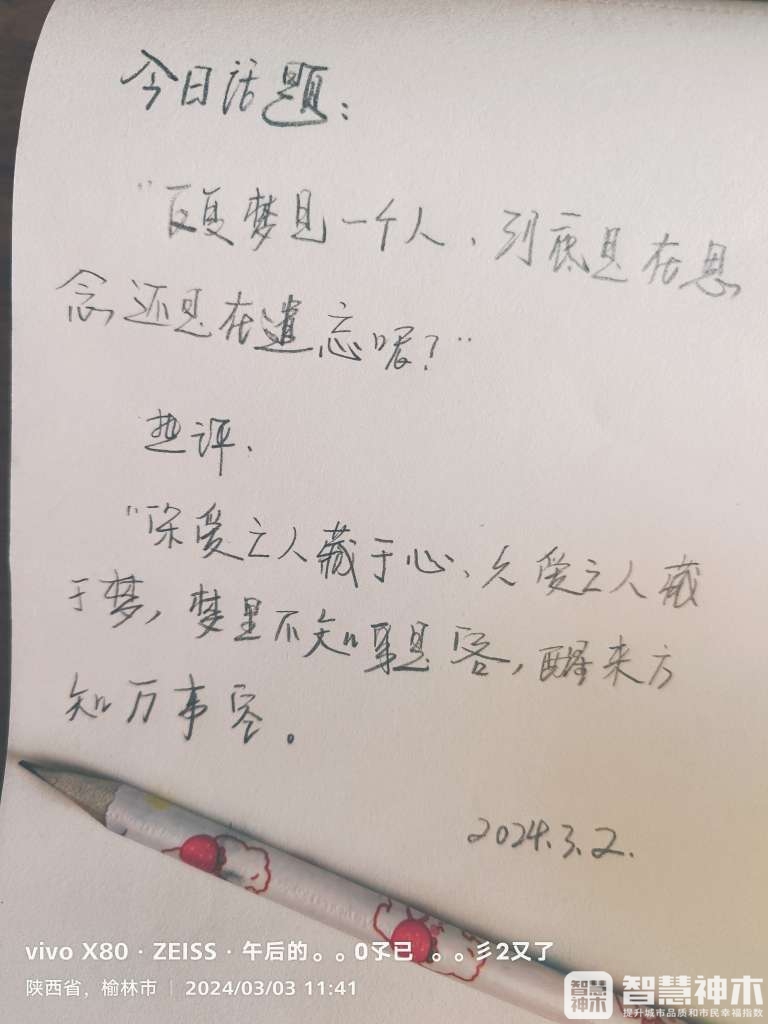 今日话题：
“反复梦见一个人，到底是在思
念还是在遗忘呢？”
热评、
“深爱之人藏于心、久爱之人藏
于梦，梦里不知身是客，醒来方
知万事空。
2024.3.2.
vivo X80 · ZEISS · 午后的。。0孒已 。。彡2又了
陕西省，榆林市 | 2024/03/03 11:41
智慧神木
智慧神木
提升城市品质和市民幸福指数